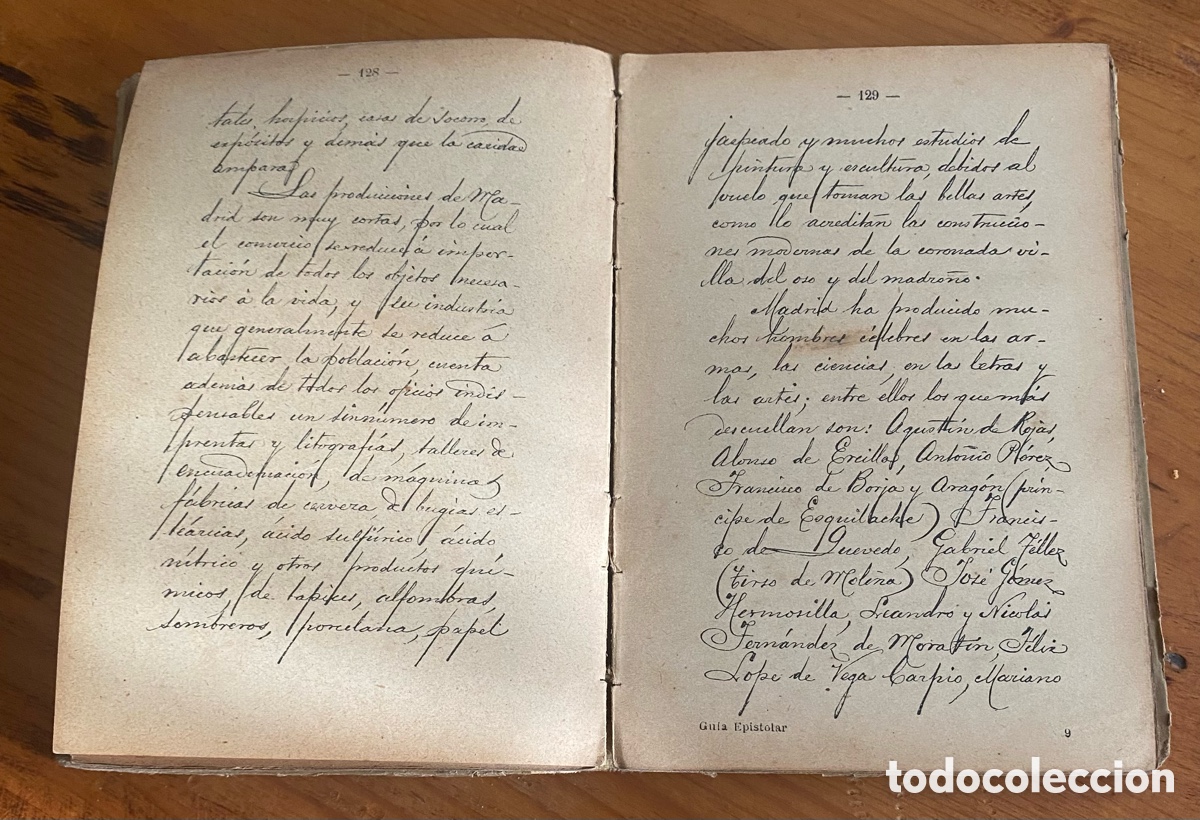 — 128 —
tales hospicios, casas de Socorro, de
expósitos y demás que la caridad
ampara.
Las producciones de Ma-
drid son muy cortas, por lo cual
el comercio se reduce á impor-
tación de todos los objetos necesa-
rios á la vida, y su industria
que generalmente se reduce á
abastecer la población, cuenta
además de todos los oficios indis-
pensables un sinnúmero de im-
prentas y litografías, talleres de
encuadernación, de máquinas,
fábricas de cerveza, de bugías es-
teáricas, ácido sulfúrico, ácido
nítrico y otros productos quí-
micos, de tapices, alfombras,
sombreros, porcelana, papel
— 129 —
jaspeado y muchos estudios de
pintura y escultura, debidos al
vuelo que toman las bellas artes,
como lo acreditan las construccio-
nes modernas de la coronada vi-
lla del oso y del madroño.
Madrid ha producido mu-
chos hombres célebres en las ar-
mas, las ciencias, en las letras y
las artes; entre ellos los que más
descuellan son: Agustín de Rojas,
Alonso de Ercilla, Antonio Pérez,
Francisco de Borja y Aragón (prín-
cipe de Esquilache) Francis-
co de Quevedo, Gabriel Téllez
(Tirso de Molina) José Gómez
Hermosilla, Leandro y Nicolás
Fernández de Moratín, Félix
Lope de Vega Carpio, Mariano
Guía Epistolar 9
todocoleccion